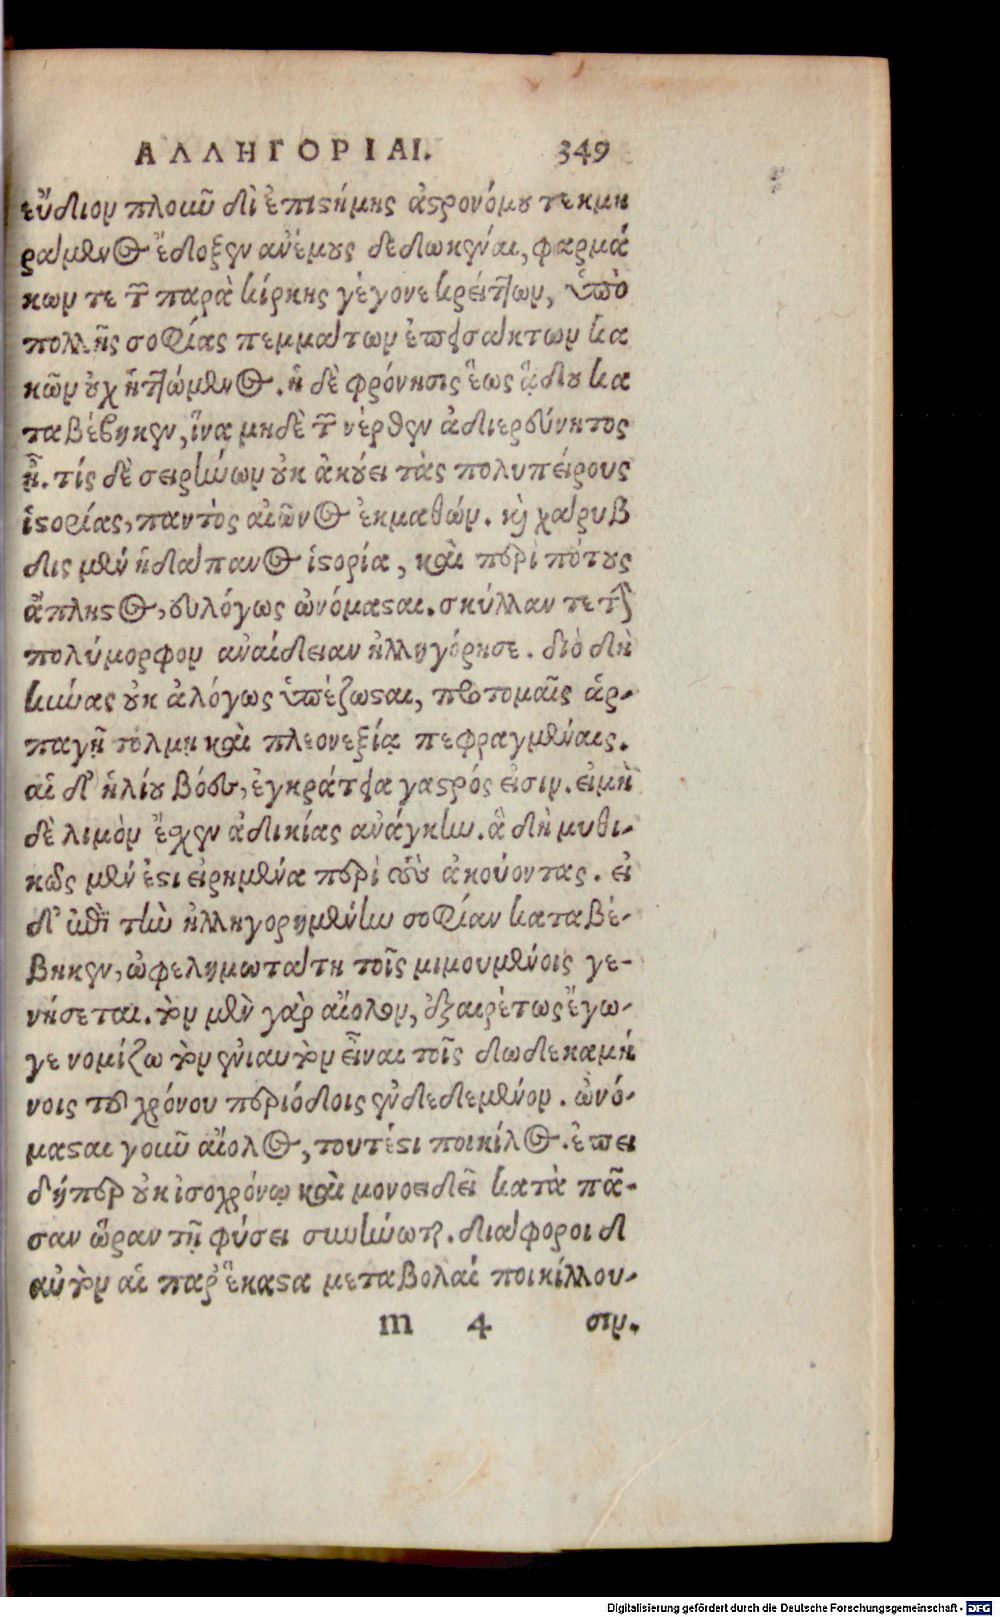 ΑΛΛΗΓΟΡΙΑΙ. 349
εὔδιον πλοῦν δὶ ἐπιστήμης ἀστρονόμου τεκμη
ραμένος ἔδοξεν ἀνέμους δεδωκέναι, φαρμά
κων τε τῶν παρὰ κίρκης γέγονε κρείττων, ὑπὸ
πολλῆς σοφίας πεμμάτων ἐπεισάκτων κα
κῶν οὐχ ἡττώμενος. ἡ δὲ φρόνησις ἕως ᾅδου κα
ταβέβηκεν, ἵνα μηδὲ τῶν νέρθεν ἀδιερεύνητος
ᾖ. τίς δὲ σειρήνων οὐκ ἀκούει τὰς πολυπείρους
ἱστορίας, παντὸς αἰῶνος ἐκμαθών. καὶ χάρυβ
δις μὲν ἡ δάπανος ἱστορία, καὶ περὶ πότους
ἄπληστος, εὐλόγως ὠνόμασται. σκύλλαν τε τὴν
πολύμορφον ἀναίδειαν ἠλληγόρησε. διὸ δὴ
κύνας οὐκ ἀλόγως ὑπέζωσται, προτομαῖς ἁρ-
παγῇ τόλμῃ καὶ πλεονεξίᾳ πεφραγμέναις.
αἱ δ' ἡλίου βόες, ἐγκράτεια γαστρός εἰσιν. εἰ μὴ
δὲ λιμὸν ἔχεν ἀδικίας ἀνάγκην. ἃ δὴ μυθι-
κῶς μέν ἐστι εἰρημένα περὶ τοὺς ἀκούοντας. εἰ
δ' ἐπὶ τὴν ἠλληγορημένην σοφίαν καταβέ-
βηκεν, ὠφελημωτάτη τοῖς μιμουμένοις γε-
νήσεται. τὸν μὲν γὰρ αἴολον, ἐξαιρέτως ἔγω-
γε νομίζω τὸν ἐνιαυτὸν εἶναι τοῖς δωδεκαμή
νοις τοῦ χρόνου περιόδοις ἐνδεδεμένον. ὠνό-
μασται γοῦν αἴολος, τουτέστι ποικίλος. ἐπει
δήπερ οὐκ ἰσοχρόνῳ καὶ μονοειδεῖ κατὰ πᾶ-
σαν ὥραν τῇ φύσει συνήνωται. διάφοροι δ
αὐτὸν αἱ παρ' ἕκαστα μεταβολαί ποικίλλου-
m 4 σιν.
Digitalisierung gefördert durch die Deutsche Forschungsgemeinschaft - DFG